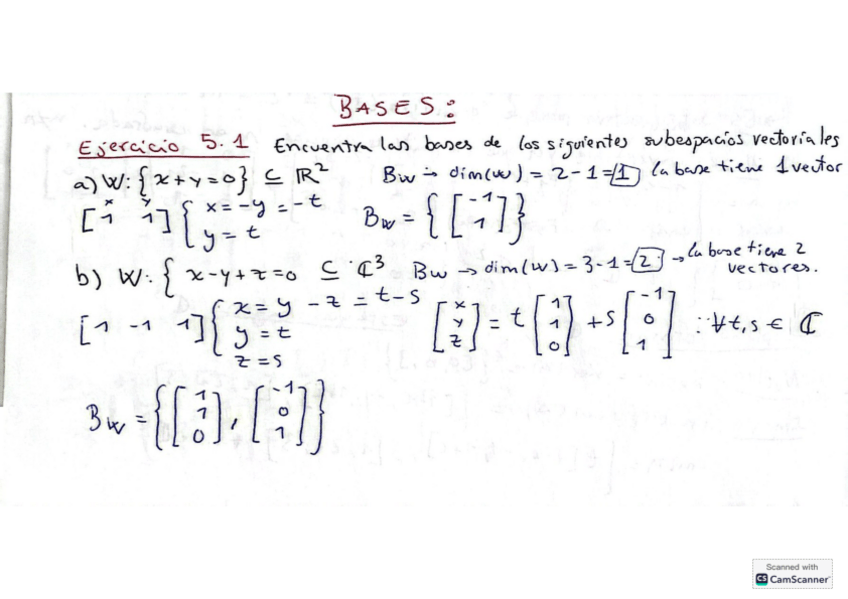 BASES:
Ejercicio 5.1 Encuentra las bases de los siguientes subespacios vectoriales
a) W: { x+y=0 } ⊆ ℝ² Bw → dim(w) = 2-1=1 la base tiene 1 vector
x y
[1 1] { x=-y=-t
y=t
Bw = { [-1 1] }
b) W: { x-y+z=0 ⊆ ℂ³ Bw → dim(w)=3-1=2 → la base tiene 2 vectores.
[1 -1 1] { x=y-z=t-s
y=t
z=s
[x y z] = t [1 1 0] + s [-1 0 1] ∴ ∀t,s ∈ ℂ
Bw = { [1 1 0], [-1 0 1] }
Scanned with
CS CamScanner